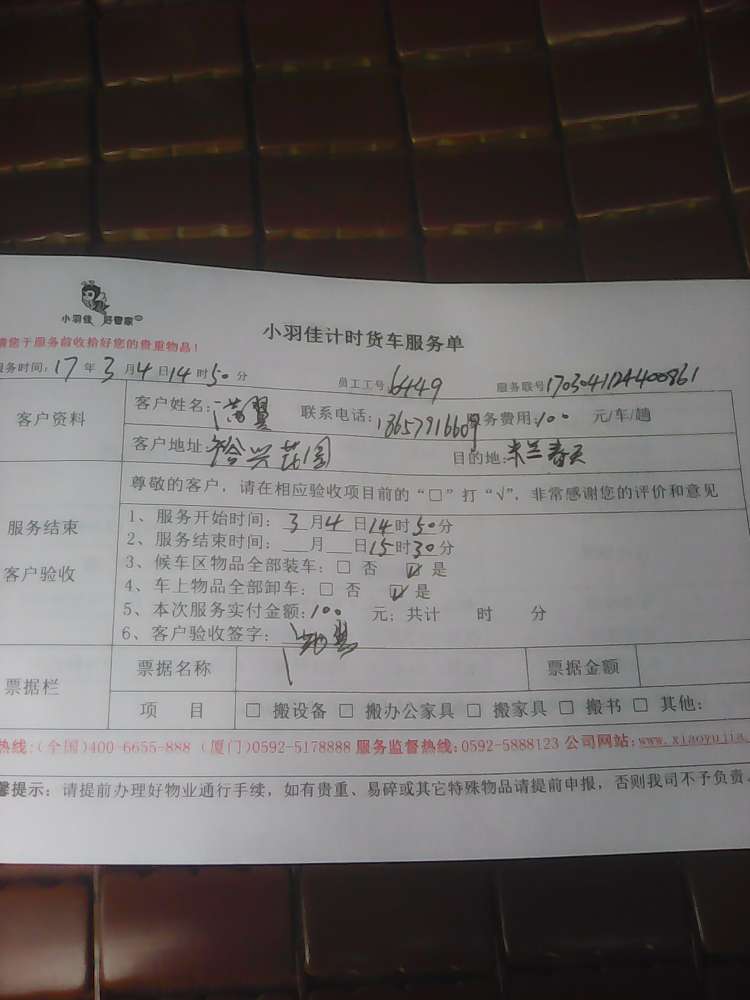 小羽佳 好管家
小羽佳计时货车服务单
请您于服务前收拾好您的贵重物品！
服务时间：17年3月4日14时50分 员工工号 6449 服务联号 170304124400861
客户资料
客户姓名： 联系电话： 服务费用：100 元/车/趟
客户地址：裕兴花园 目的地：米兰春天
尊敬的客户，请在相应验收项目前的“□”打“√”，非常感谢您的评价和意见
服务结束
客户验收
1、服务开始时间：3月4日14时50分
2、服务结束时间：___月___日15时30分
3、候车区物品全部装车：□ 否 ☑ 是
4、车上物品全部卸车：□ 否 ☑ 是
5、本次服务实付金额：100 元；共计 时 分
6、客户验收签字：
票据栏
票据名称 票据金额
项 目 □ 搬设备 □ 搬办公家具 □ 搬家具 □ 搬书 □ 其他：
热线：(全国)400-6655-888 (厦门)0592-5178888 服务监督热线：0592-5888123 公司网站：www.xiaoyujia.
馨提示：请提前办理好物业通行手续，如有贵重、易碎或其它特殊物品请提前申报，否则我司不予负责。